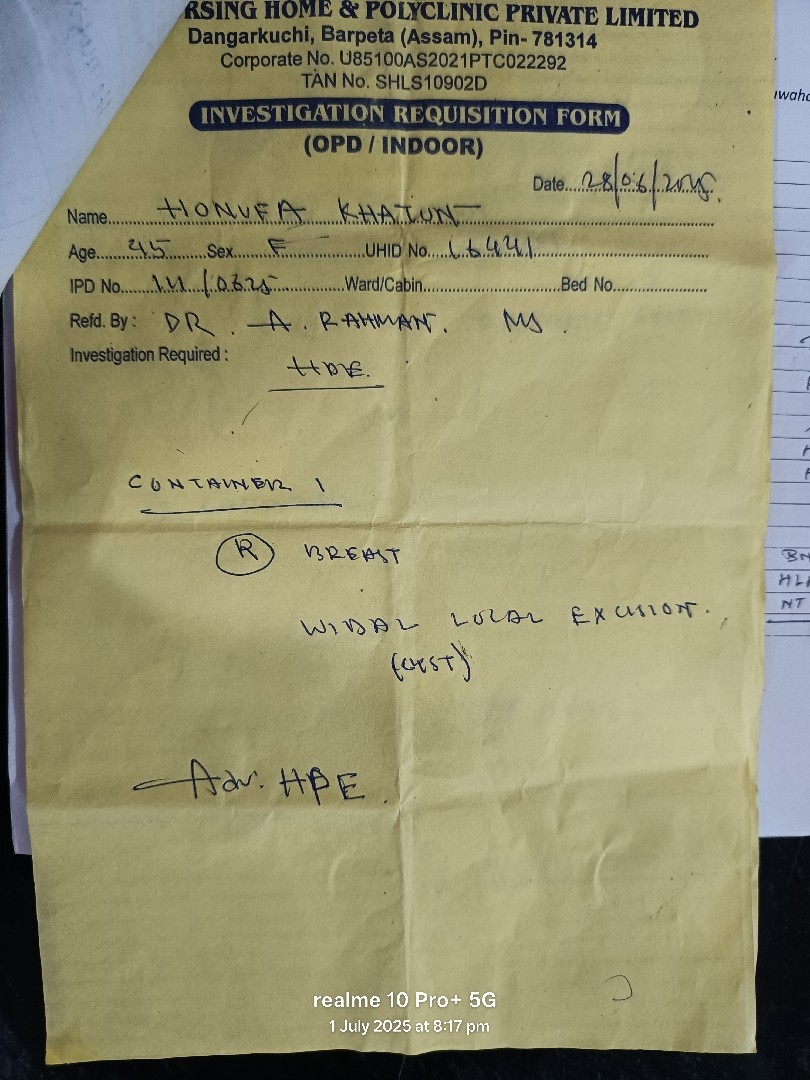 RSING HOME & POLYCLINIC PRIVATE LIMITED
Dangarkuchi, Barpeta (Assam), Pin- 781314
Corporate No. U85100AS2021PTC022292
TAN No. SHLS10902D
INVESTIGATION REQUISITION FORM
(OPD / INDOOR)
Date....28/06/2025
Name....HONUFA KHATUN
Age....45....Sex....F....UHID No....16441
IPD No....111/0625....Ward/Cabin....Bed No....
Refd. By : DR. A. RAHMAN. MS.
Investigation Required :
HPE.
CONTAINER 1
R BREAST
LOCAL EXCISION.
(CYST)
Adv. HPE.
HL
NT
realme 10 Pro+ 5G
1 July 2025 at 8:17 pm